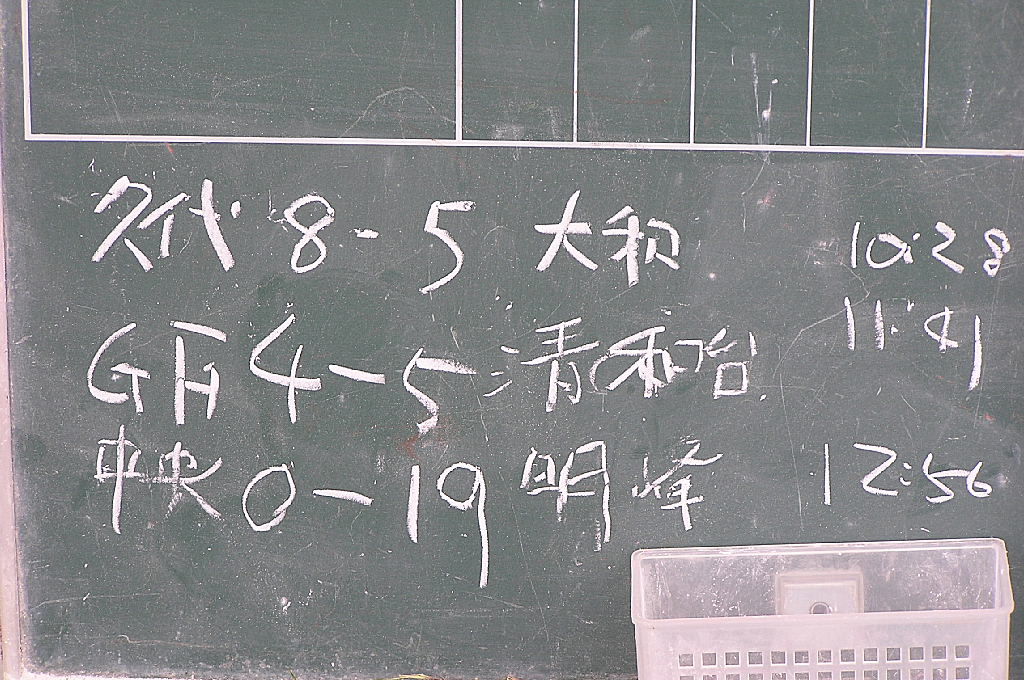 久代 8-5 大和 10:28
GH 4-5 清和台 11:41
中央 0-19 明峰 12:56